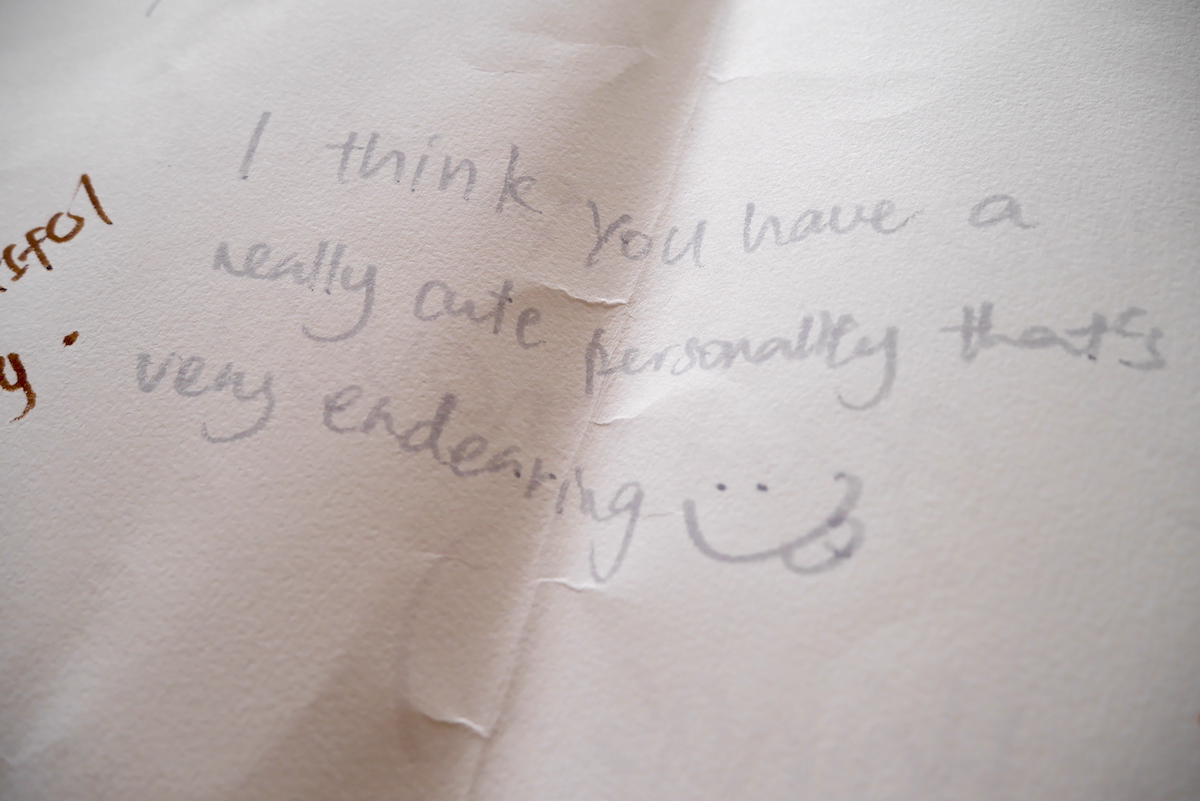 I think you have a
really cute personality that's
very endearing